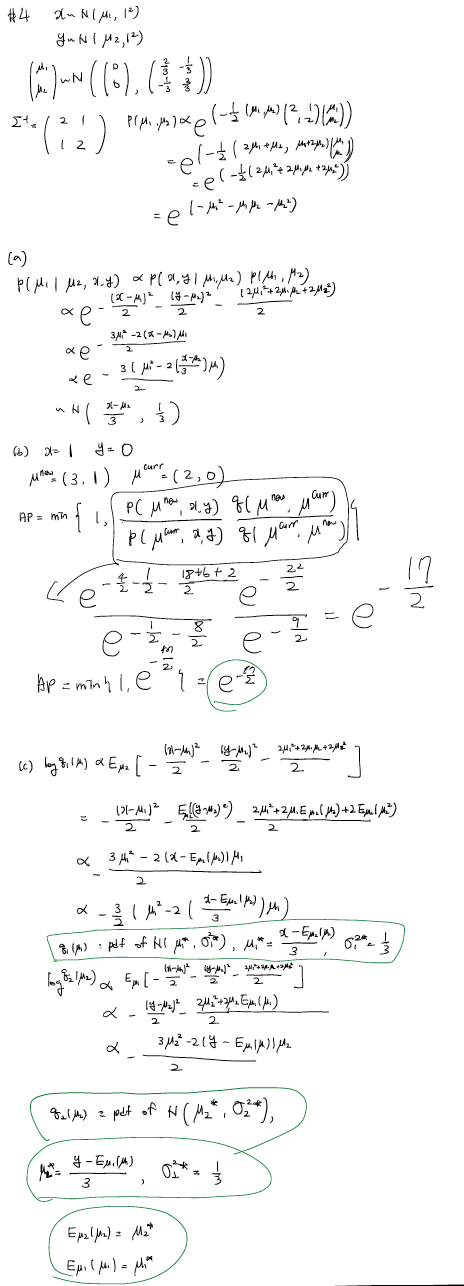 #4 x~N(μ₁, 1²)
y~N(μ₂, 1²)
(μ₁ μ₂) ~ N((0 0), (2/3 -1/3 -1/3 2/3))
Σ⁻¹ = (2 1 1 2) P(μ₁,μ₂) ∝ e^(-1/2 (μ₁,μ₂)(2 1 1 2)(μ₁ μ₂))
= e^(-1/2 (2μ₁+μ₂, μ₁+2μ₂)(μ₁ μ₂))
= e^(-1/2 (2μ₁²+2μ₁μ₂+2μ₂²))
= e^(-μ₁²-μ₁μ₂-μ₂²)
(a)
P(μ₁|μ₂,x,y) ∝ P(x,y|μ₁,μ₂) P(μ₁,μ₂)
∝ e^(-(x-μ₁)²/2 - (y-μ₂)²/2 - (2μ₁²+2μ₁μ₂+2μ₂²)/2)
∝ e^(-(3μ₁²-2(x-μ₂)μ₁)/2)
∝ e^(-3(μ₁²-2((x-μ₂)/3)μ₁)/2)
~ N((x-μ₂)/3, 1/3)
(b) x=1 y=0
μ^new=(3,1) μ^curr=(2,0)
AP = min{1, P(μ^new,x,y) q(μ^new,μ^curr) / P(μ^curr,x,y) q(μ^curr,μ^new)}
e^(-4/2-1/2-(18+6+2)/2) / e^(-1/2-8/2) e^(-22/2) / e^(-9/2) = e^(-17/2)
AP = min{1, e^(-17/2)} = e^(-17/2)
(c) log q₁(μ₁) ∝ E_μ₂[-(x-μ₁)²/2 - (y-μ₂)²/2 - (2μ₁²+2μ₁μ₂+2μ₂²)/2]
= -(x-μ₁)²/2 - E_μ₂((y-μ₂)²)/2 - (2μ₁²+2μ₁E_μ₂(μ₂)+2E_μ₂(μ₂²))/2
∝ -(3μ₁²-2(x-E_μ₂(μ₂))μ₁)/2
∝ -3/2(μ₁²-2((x-E_μ₂(μ₂))/3)μ₁)
q₁(μ₁) : pdf of N(μ₁*, σ₁²*), μ₁* = (x-E_μ₂(μ₂))/3, σ₁²* = 1/3
log q₂(μ₂) ∝ E_μ₁[-(x-μ₁)²/2 - (y-μ₂)²/2 - (2μ₁²+2μ₁μ₂+2μ₂²)/2]
∝ -(y-μ₂)²/2 - (2μ₂²+2μ₂E_μ₁(μ₁))/2
∝ -(3μ₂²-2(y-E_μ₁(μ₁))μ₂)/2
q₂(μ₂) = pdf of N(μ₂*, σ₂²*),
μ₂* = (y-E_μ₁(μ₁))/3, σ₂²* = 1/3
E_μ₂(μ₂) = μ₂*
E_μ₁(μ₁) = μ₁*